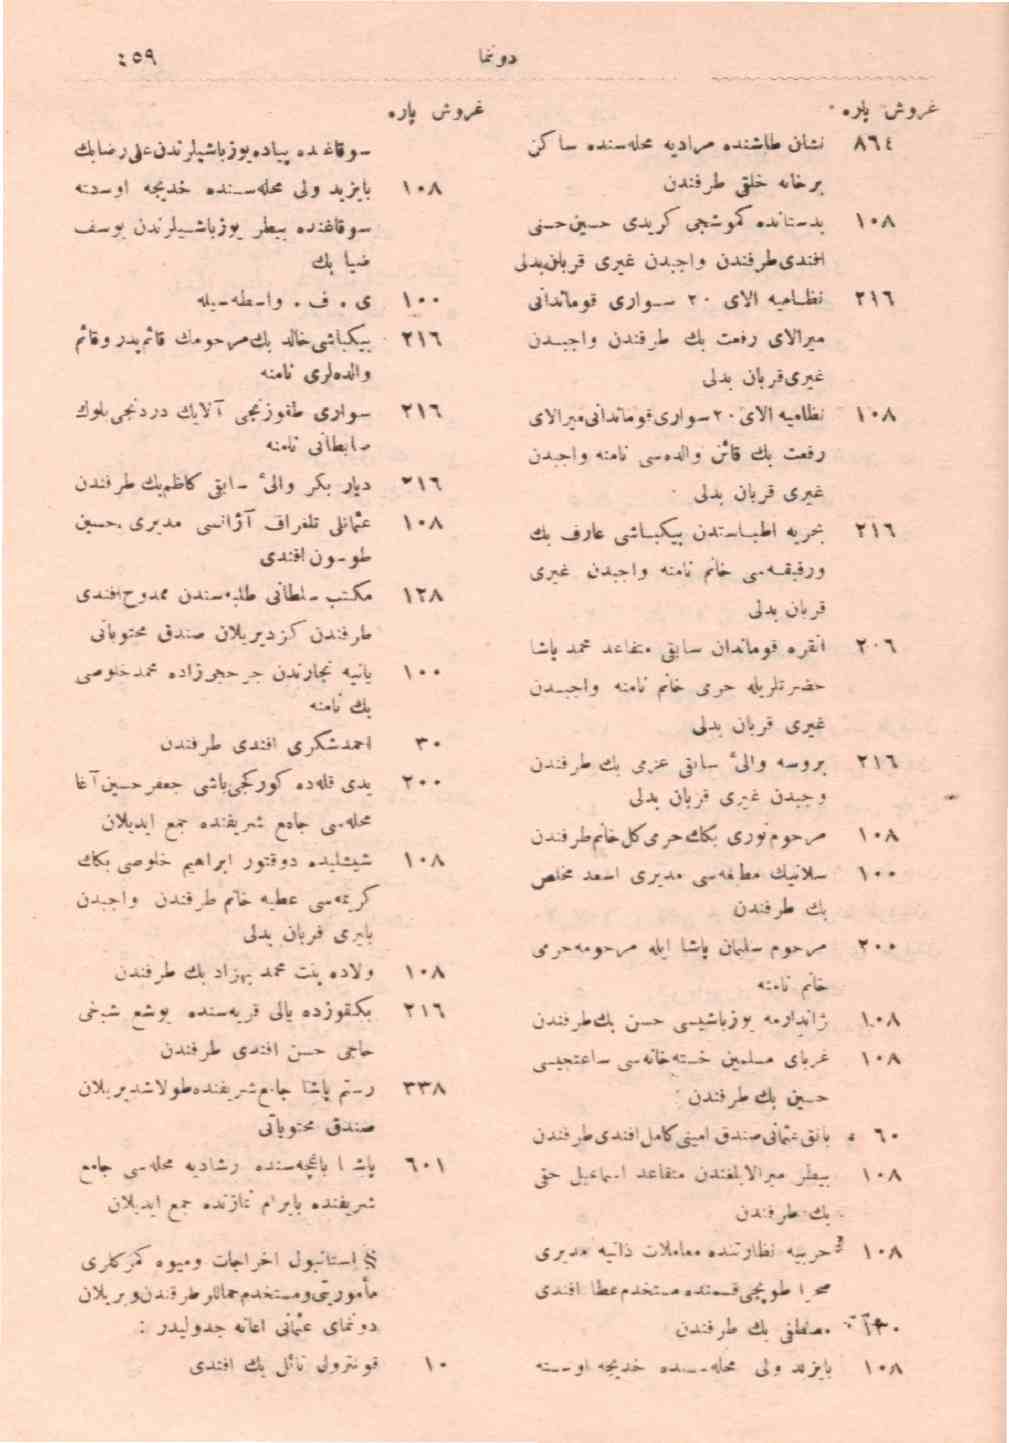 دوننما
٤٥٩
غروش پاره
٨٦٤ نشان طاشنده مراديه محله‌سنده ساكن
بر خانه خلقى طرفندن
١٠٨ بدستانده كموشجى كريدى حسين حسنى
افندى طرفندن واجبدن غيرى قربان بدلى
٢١٦ نظاميه الاى ٢٠ سوارى قوماندانى
ميرالاى رفعت بك طرفندن واجبدن
غيرى قربان بدلى
١٠٨ نظاميه الاى ٢٠ سوارى قوماندانى ميرالاى
رفعت بك قائن والده‌سى نامنه واجبدن
غيرى قربان بدلى
٢١٦ بحريه اطباسندن بيكباشى عارف بك
ورفيقه‌سى خانم نامنه واجبدن غيرى
قربان بدلى
٢٠٦ انقره قوماندان سابقى متقاعد محمد پاشا
حضرتلريله حرمى خانم نامنه واجبدن
غيرى قربان بدلى
٢١٦ بروسه والئ سابقى عزمى بك طرفندن
وجبدن غيرى قربان بدلى
١٠٨ مرحوم نورى بكك حرمى كل خانم طرفندن
١٠٠ سلانيك مطبعه‌سى مديرى اسعد مخلص
بك طرفندن
٢٠٠ مرحوم سليمان پاشا ايله مرحومه حرمى
خانم نامنه
١٠٨ ژاندارمه يوزباشيسى حسن بك طرفندن
١٠٨ غرباى مسلمين خسته‌خانه‌سى ساعتجيسى
حسين بك طرفندن
٦٠ بانق عثمانى صندق امينى كامل افندى طرفندن
١٠٨ بيطر ميرالايلغندن متقاعد اسماعيل حقى
بك طرفندن
١٠٨ حربيه نظارتنده معاملات ذاتيه مديرى
صحرا طوپچى قسمنده مستخدم عطا افندى
مصطفى بك طرفندن
١٠٨ بايزيد ولى محله‌سنده خديجه اوسته
غروش پاره
سوقاغنده پياده يوزباشيلرندن على رضا بك
١٠٨ بايزيد ولى محله‌سنده خديجه اوسته
سوقاغنده بيطر يوزباشيلرندن يوسف
ضيا بك
١٠٠ ى . ف . واسطه‌سيله
٢١٦ بيكباشى خالد بك مرحومك قائم‌پدر وقائم
والده‌لرى نامنه
٢١٦ سوارى طقوزنجى آلايك دردنجى بلوك
ضابطانى نامنه
٢١٦ ديار بكر والئ سابقى كاظم بك طرفندن
١٠٨ عثمانلى تلغراف آژانسى مديرى حسين
طوسون افندى
١٢٨ مكتب سلطانى طلبه‌سندن ممدوح افندى
طرفندن كزديريلان صندق محتوياتى
١٠٠ يانيه تجارندن زاده محمد خلوصى
بك نامنه
٣٠ احمد شكرى افندى طرفندن
٢٠٠ يدى قله‌ده كوركجى‌باشى جعفر حسين آغا
محله‌سى جامع شريفنده جمع ايديلان
١٠٨ شيشليده دوقتور ابراهيم خلوصى بكك
كريمه‌سى عطيه خانم طرفندن واجبدن
غيرى قربان بدلى
١٠٨ ولاده بنت محمد بهزاد بك طرفندن
٢١٦ بكقوزده يالى قريه‌سنده يوشع شيخى
حاجى حسن افندى طرفندن
٣٣٨ رستم پاشا جامع شريفنده طولاشديريلان
صندق محتوياتى
٦٠١ پاشا باغچه‌سنده رشاديه محله‌سى جامع
شريفنده بايرام نمازنده جمع ايديلان
§ استانبول اخراجات وميوه كمركلرى
مأمورينى ومستخدم حماللر طرفندن ويريلان
دوننماى عثمانى اعانه جدوليدر :
١٠ قونترولى نائل بك افندى